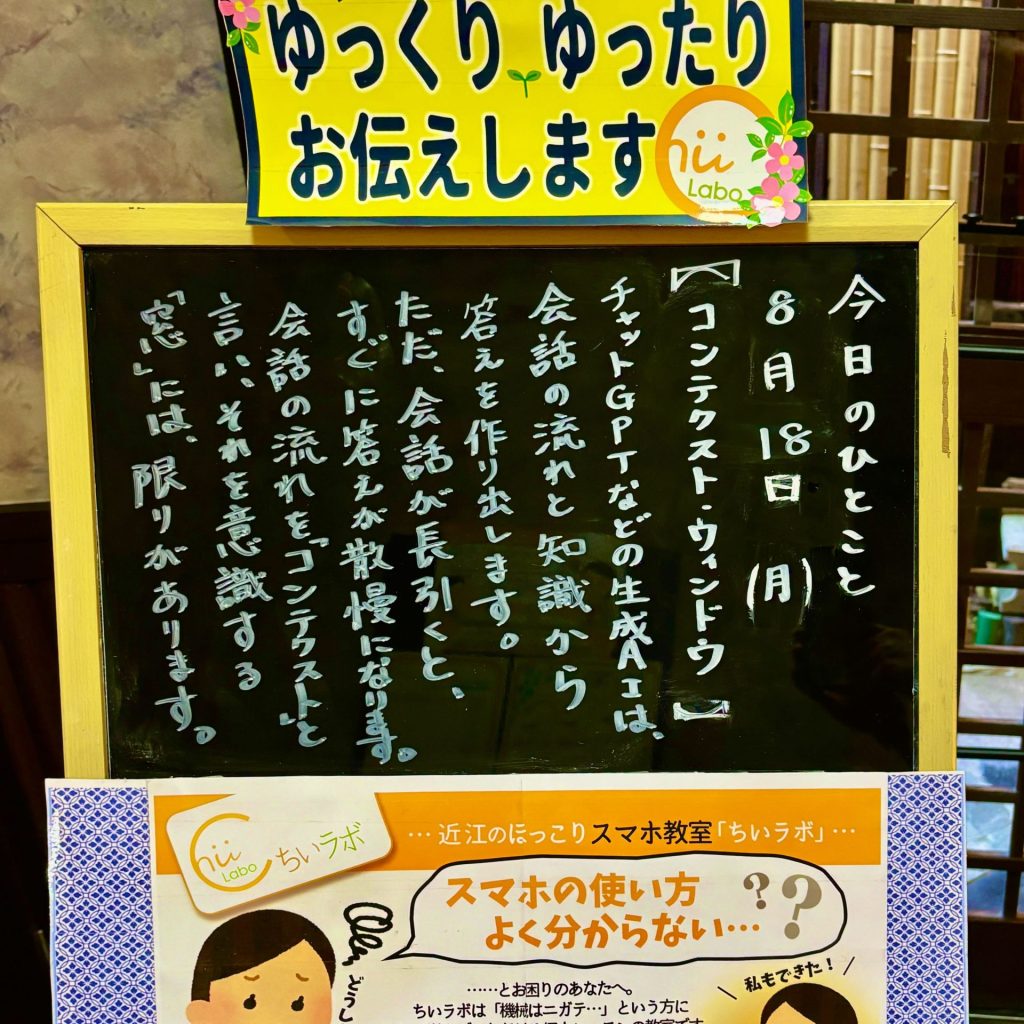 ゆっくり ゆったり
お伝えします
Chii
Labo
今日のひとこと
8月18日(月)
【コンテクスト・ウィンドウ】
チャットGPTなどの生成AIは、
会話の流れと知識から
答えを作り出します。
ただ、会話が長引くと、
すぐに答えが散慢になります。
会話の流れを「コンテクスト」と
言い、それを意識する
「窓」には、限りがあります。
Chii
Labo
ちいラボ
…近江のほっこりスマホ教室「ちいラボ」…
スマホの使い方
よく分からない…??
どうし
私もできた!
……とお困りのあなたへ。
ちいラボは「機械はニガテ…」という方に